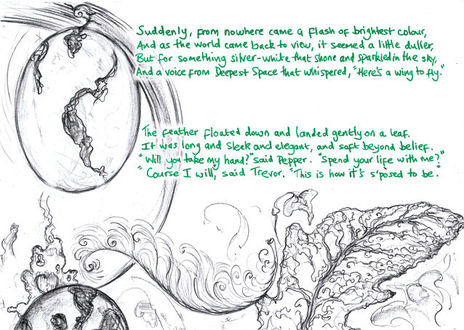 Suddenly, from nowhere came a flash of brightest colour,
And as the world came back to view, it seemed a little duller,
But for something silver-white that shone and sparkled in the sky,
And a voice from Deepest Space that whispered, "Here's a wing to fly."
The feather floated down and landed gently on a leaf.
It was long and sleek and elegant, and soft beyond belief.
"Will you take my hand?" said Pepper. "Spend your life with me?"
"Course I will," said Trevor. "This is how it's s'posed to be."